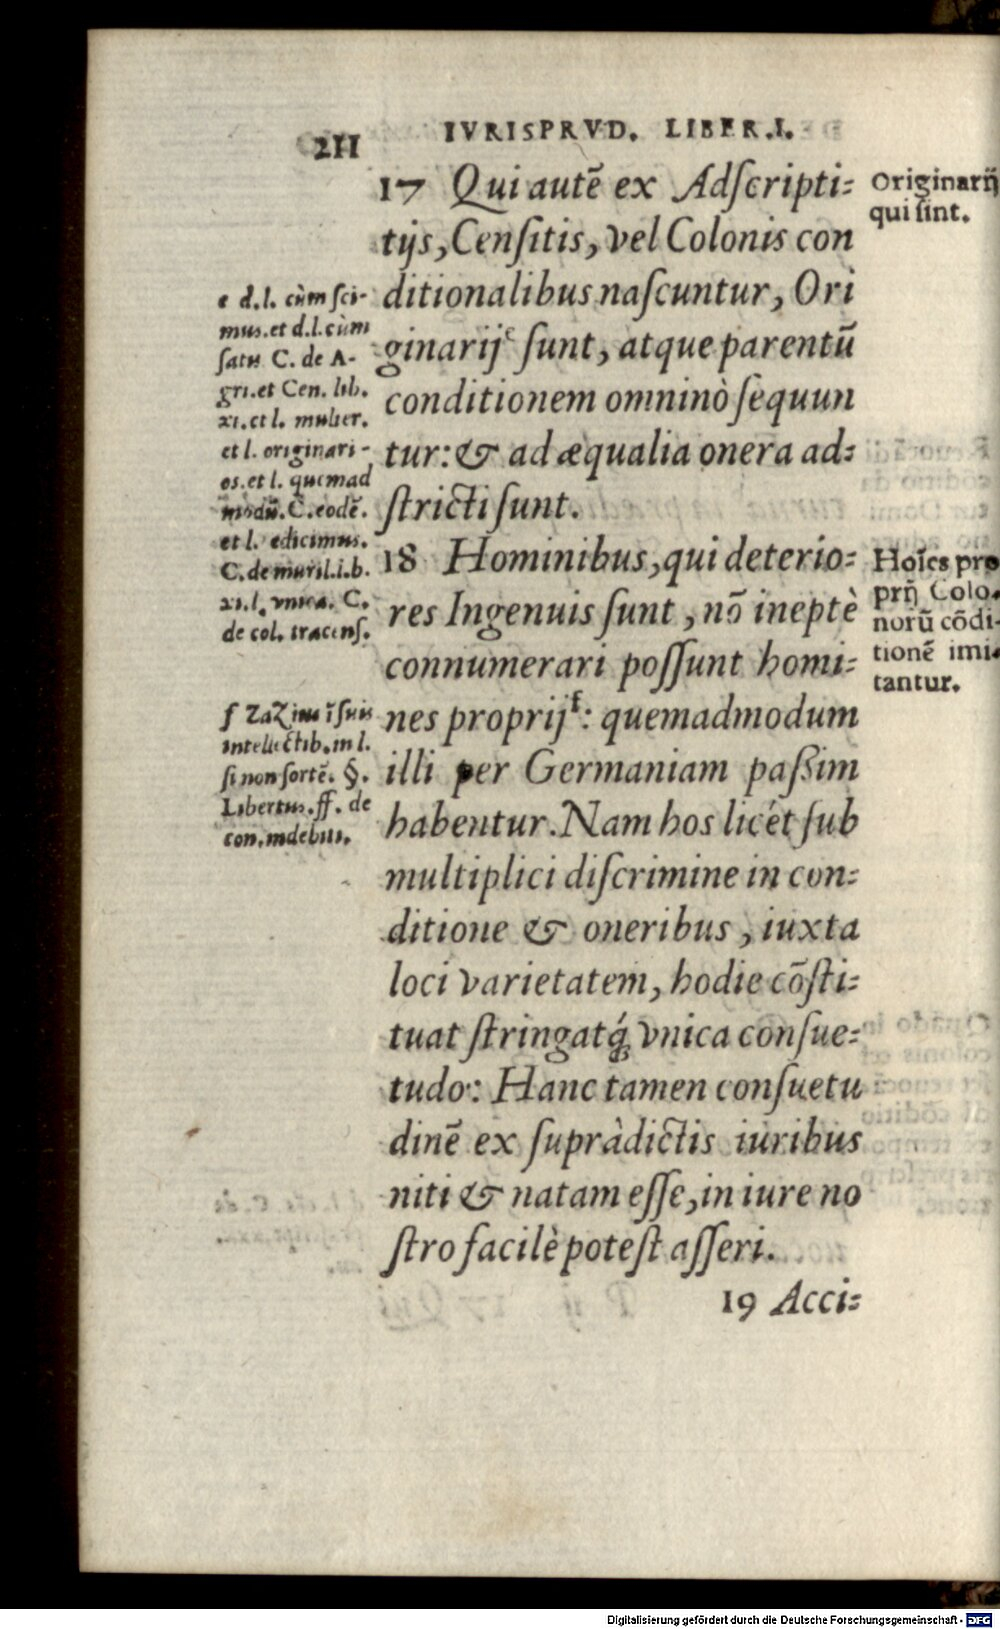 211
IVRISPRVD. LIBER.I.
17 Qui autē ex Adſcripti=
tijs, Cenſitis, vel Colonis con
ditionalibus naſcuntur, Ori
ginarij e ſunt, atque parentū
conditionem omninò ſequun
tur: & ad æqualia onera ad=
ſtricti ſunt.
18 Hominibus, qui deterio=
res Ingenuis ſunt, nō ineptè
connumerari poſſunt homi=
nes proprij f: quemadmodum
illi per Germaniam paßim
habentur. Nam hos licét ſub
multiplici diſcrimine in con=
ditione & oneribus, iuxta
loci varietatem, hodie cōſti=
tuat ſtringatq́; vnica conſue=
tudo: Hanc tamen conſuetu
dinē ex ſupràdictis iuribus
niti & natam eſſe, in iure no
ſtro facilè poteſt aſſeri.
19 Acci=
e d.l. cùm ſci-
mus. et d.l. cùm
ſatis C. de A-
gri. et Cen. lib.
xi. et l. mulier.
et l. originari-
os. et l. quemad
modū. C. eodē.
et l. edicimus.
C. de muril. i. b.
xi. l. vnica. C.
de col. tracenſ.
f ZaZius ī ſuis
intellectib. in l.
ſi non ſortē. §.
Libertus. ff. de
con. indebiti.
Originarij
qui ſint.
Hoīes pro
prij Colo.
norū cōdi-
tionē imi-
tantur.
Digitalisierung gefördert durch die Deutsche Forschungsgemeinschaft - DFG